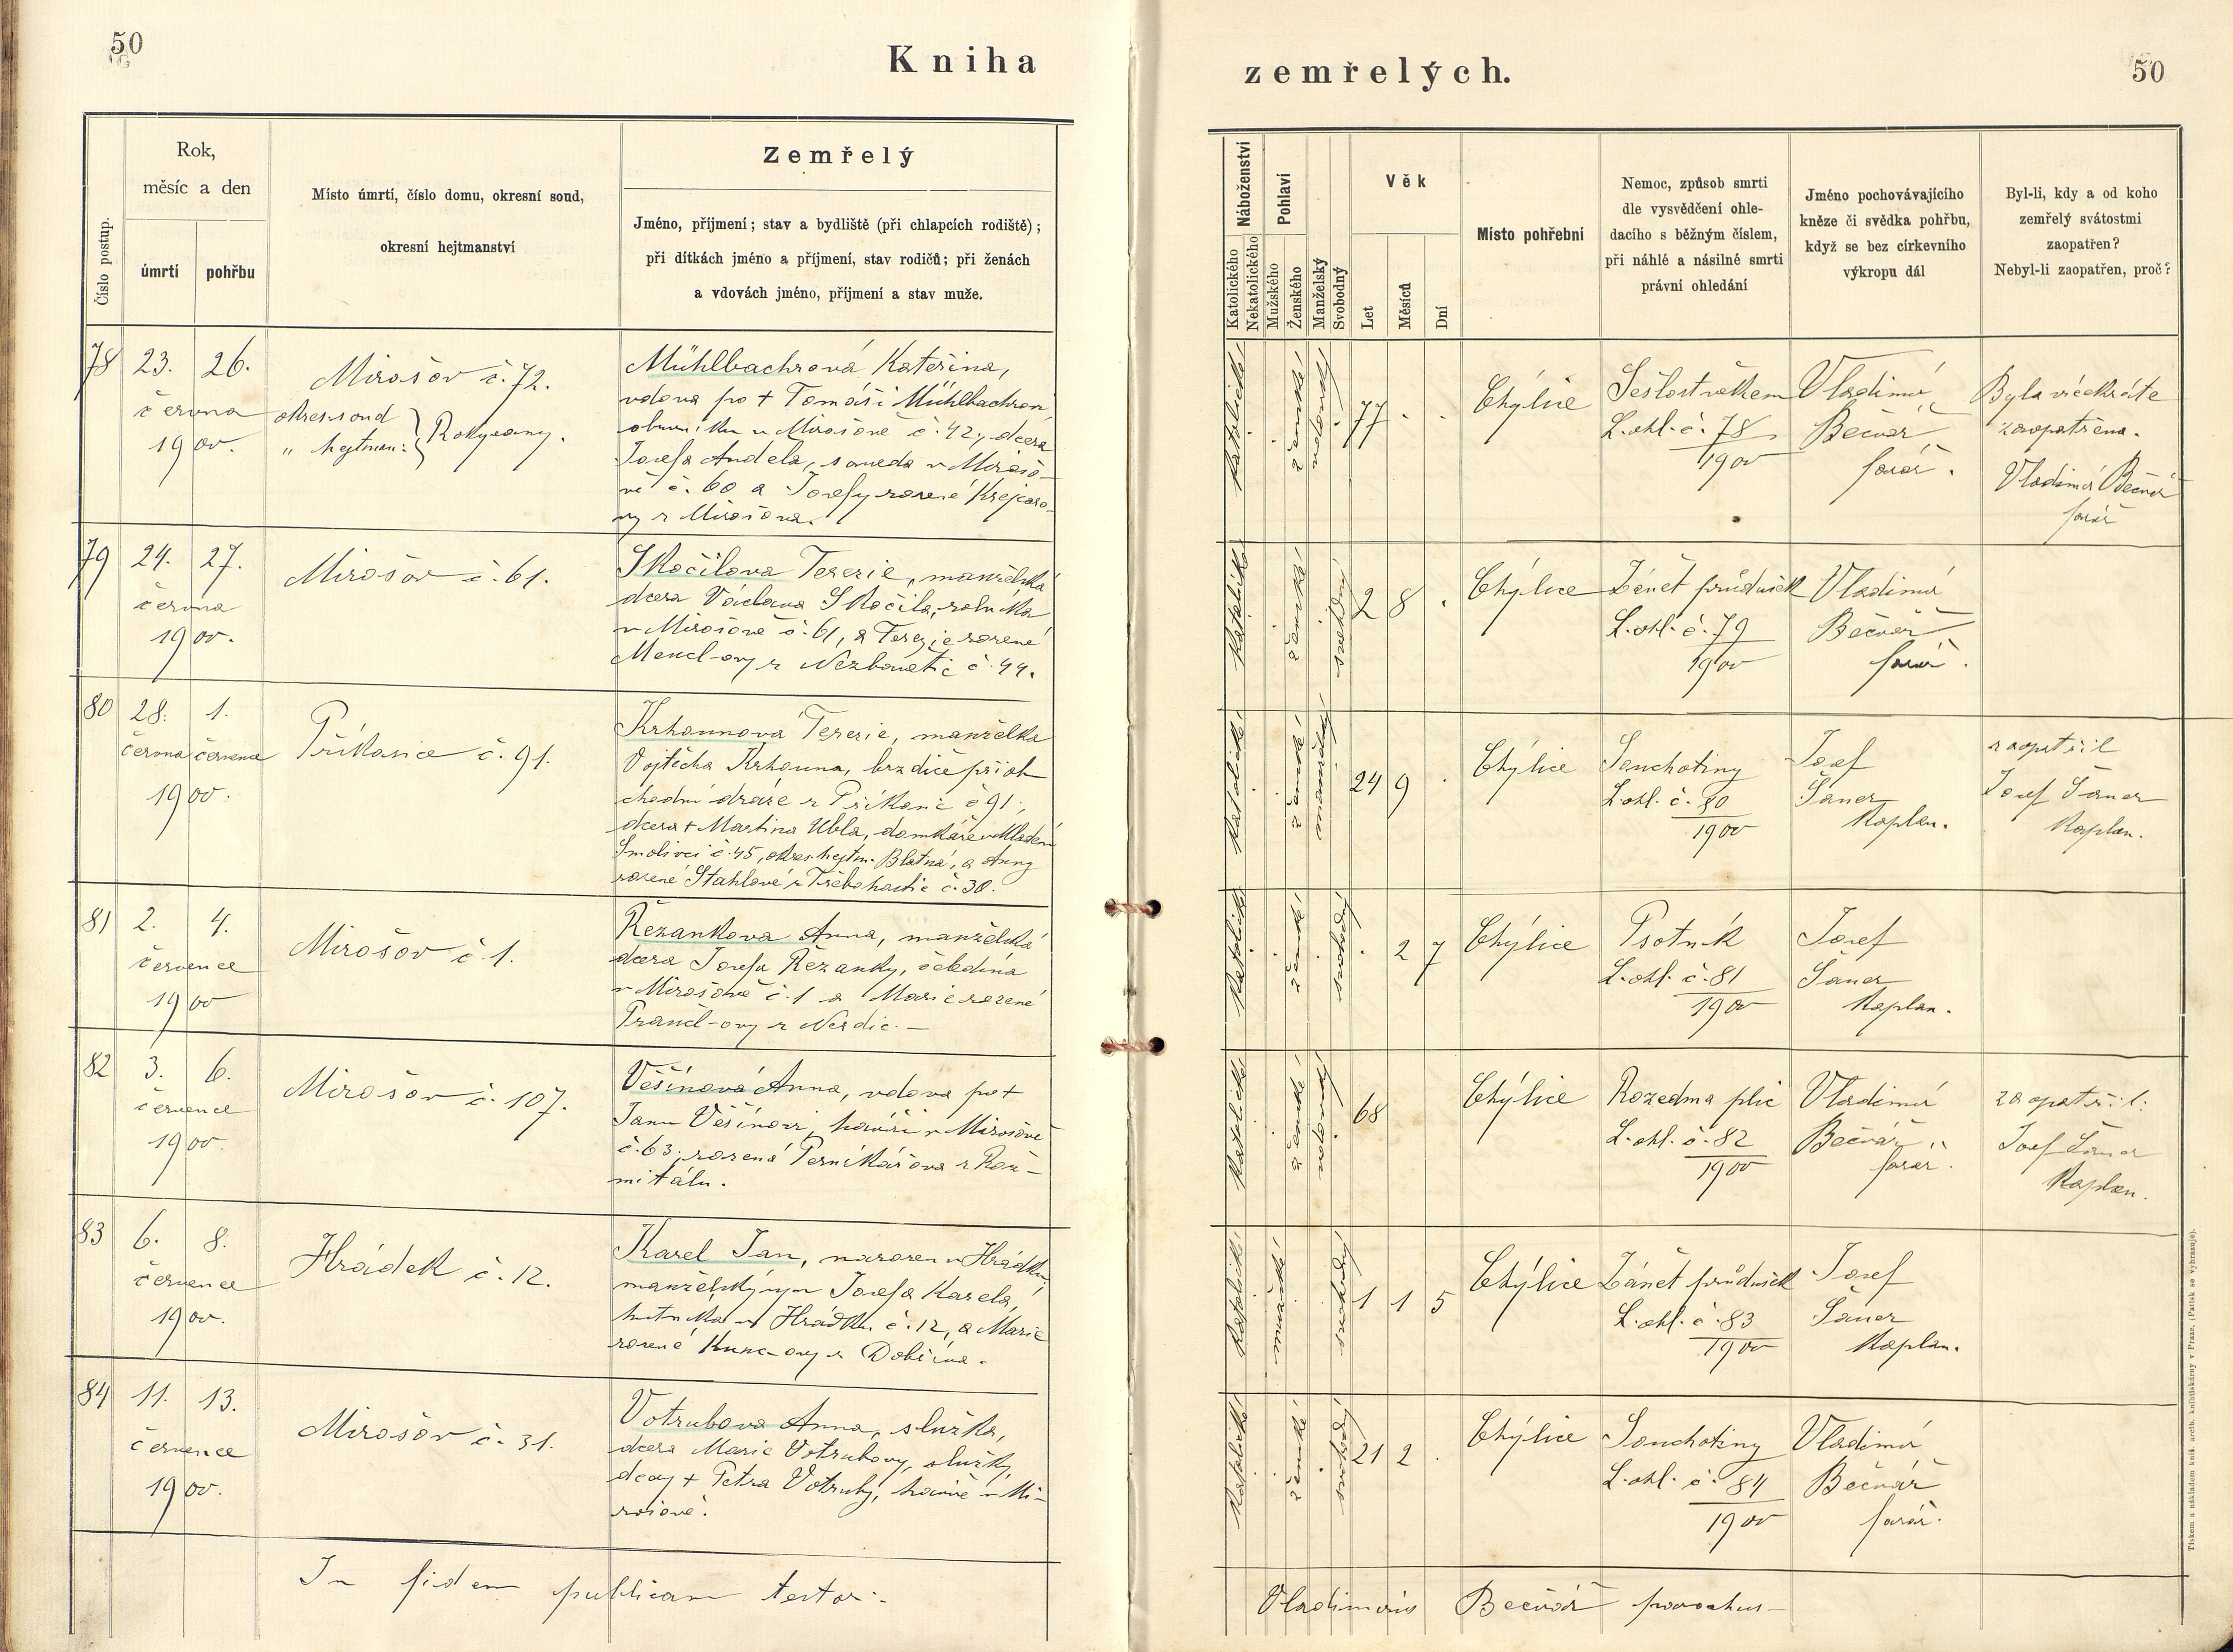 50
Kniha
zemřelých.
50
Číslo postup.
Rok,
měsíc a den
úmrtí
pohřbu
Místo úmrtí, číslo domu, okresní soud,
okresní hejtmanství
Zemřelý
Jméno, příjmení; stav a bydliště (při chlapcích rodiště);
při dítkách jméno a příjmení, stav rodičů; při ženách
a vdovách jméno, příjmení a stav muže.
Náboženství
Katolického
Nekatolického
Pohlaví
Mužského
Ženského
Manželský
Svobodný
Věk
Let
Měsíců
Dní
Místo pohřební
Nemoc, způsob smrti
dle vysvědčení ohle-
dacího s běžným číslem,
při náhlé a násilné smrti
právní ohledání
Jméno pochovávajícího
kněze či svědka pohřbu,
když se bez církevního
výkropu dál
Byl-li, kdy a od koho
zemřelý svátostmi
zaopatřen?
Nebyl-li zaopatřen, proč?
78
23. 26.
června
1900.
Mirošov č. 72.
okres. soud
„ hejtman: Rokycany.
Mühlbachrová Kateřina,
vdova po + Tomáši Mühlbachrovi,
obuvníku v Mirošově č. 42, dcera
Josefa Anděla, souseda v Mirošo-
vě č. 60 a Josefy rozené Krejcaro-
vy z Mirošova.
katolické
ženské
vdovská
77
Chýlice
Sešlost věkem
L. ohl. č. 78
1900
Vladimír
Bečvář,
farář.
Byla vícekráte
zaopatřena.
Vladimír Bečvář
farář
79
24. 27.
června
1900.
Mirošov č. 61.
Skočilova Terezie, manželská
dcera Václava Skočila, rolníka
v Mirošově č. 61, a Terezie rozené
Mencl-ovy z Nezbavětic č. 44.
katolické
ženské
svobodný
2 8
Chýlice
Zánět průdušek
L. ohl. č. 79
1900
Vladimír
Bečvář
farář.
80
28. 1.
června července
1900.
Příkosice č. 91.
Krhounová Terezie, manželka
Vojtěcha Krhouna, brzdiče při ob-
chodní dráze z Příkosic č 91.,
dcera + Martina Ubla, domkáře v Mladém
Smolivci č. 45, okres. hejtm. Blatná, a Anny
rozené Stahlové z Třebohostic č. 30.
katolické
ženské
manželský
24 9
Chýlice
Souchotiny
L. ohl. č. 80
1900
Josef
Šaner
Kaplan.
zaopatřil
Josef Šaner
Kaplan.
81
2. 4.
července
1900
Mirošov č. 1.
Řezankova Anna, manželská
dcera Josefa Řezanky, čeledína
v Mirošově č. 1 a Marie rozené
Prancl-ovy z Nezdic. —
katolické
ženské
svobodný
2 7
Chýlice
Psotník
L. ohl. č. 81
1900
Josef
Šaner
Kaplan.
82
3. 6.
července
1900.
Mirošov č. 107.
Věšínová Anna, vdova po +
Janu Věšínovi, havíři v Mirošově
č. 63, rozená Perníkářova z Rož-
mitálu.
katolické
ženské
vdovský
68
Chýlice
Rozedma plic
L. ohl. č. 82
1900
Vladimír
Bečvář,
farář.
zaopatřil:
Josef Šaner
Kaplan.
83
6. 8.
července
1900.
Hrádek č. 12.
Karel Jan, narozen v Hrádku,
manželský syn Josefa Karela,
hutníka v Hrádku č. 12, a Marie
rozené Kunc-ovy z Dobříva.
katolické
mužské
svobodný
1 1 5
Chýlice
Zánět průdušek
L. ohl. č. 83
1900
Josef
Šaner
Kaplan.
84
11. 13.
července
1900.
Mirošov č. 31.
Votrubova Anna, služka,
dcera Marie Votrubovy, služky,
dcery + Petra Votruby, havíře v Mi-
rošově.
katolické
ženské
svobodný
21 2
Chýlice
Souchotiny
L. ohl. č. 84
1900
Vladimír
Bečvář
farář.
In fidem publicam testor:
Vladimirus Bečvář parochus
Tiskem a nákladem kníž. arcib. knihtiskárny v Praze. (Patisk se vyhrazuje).